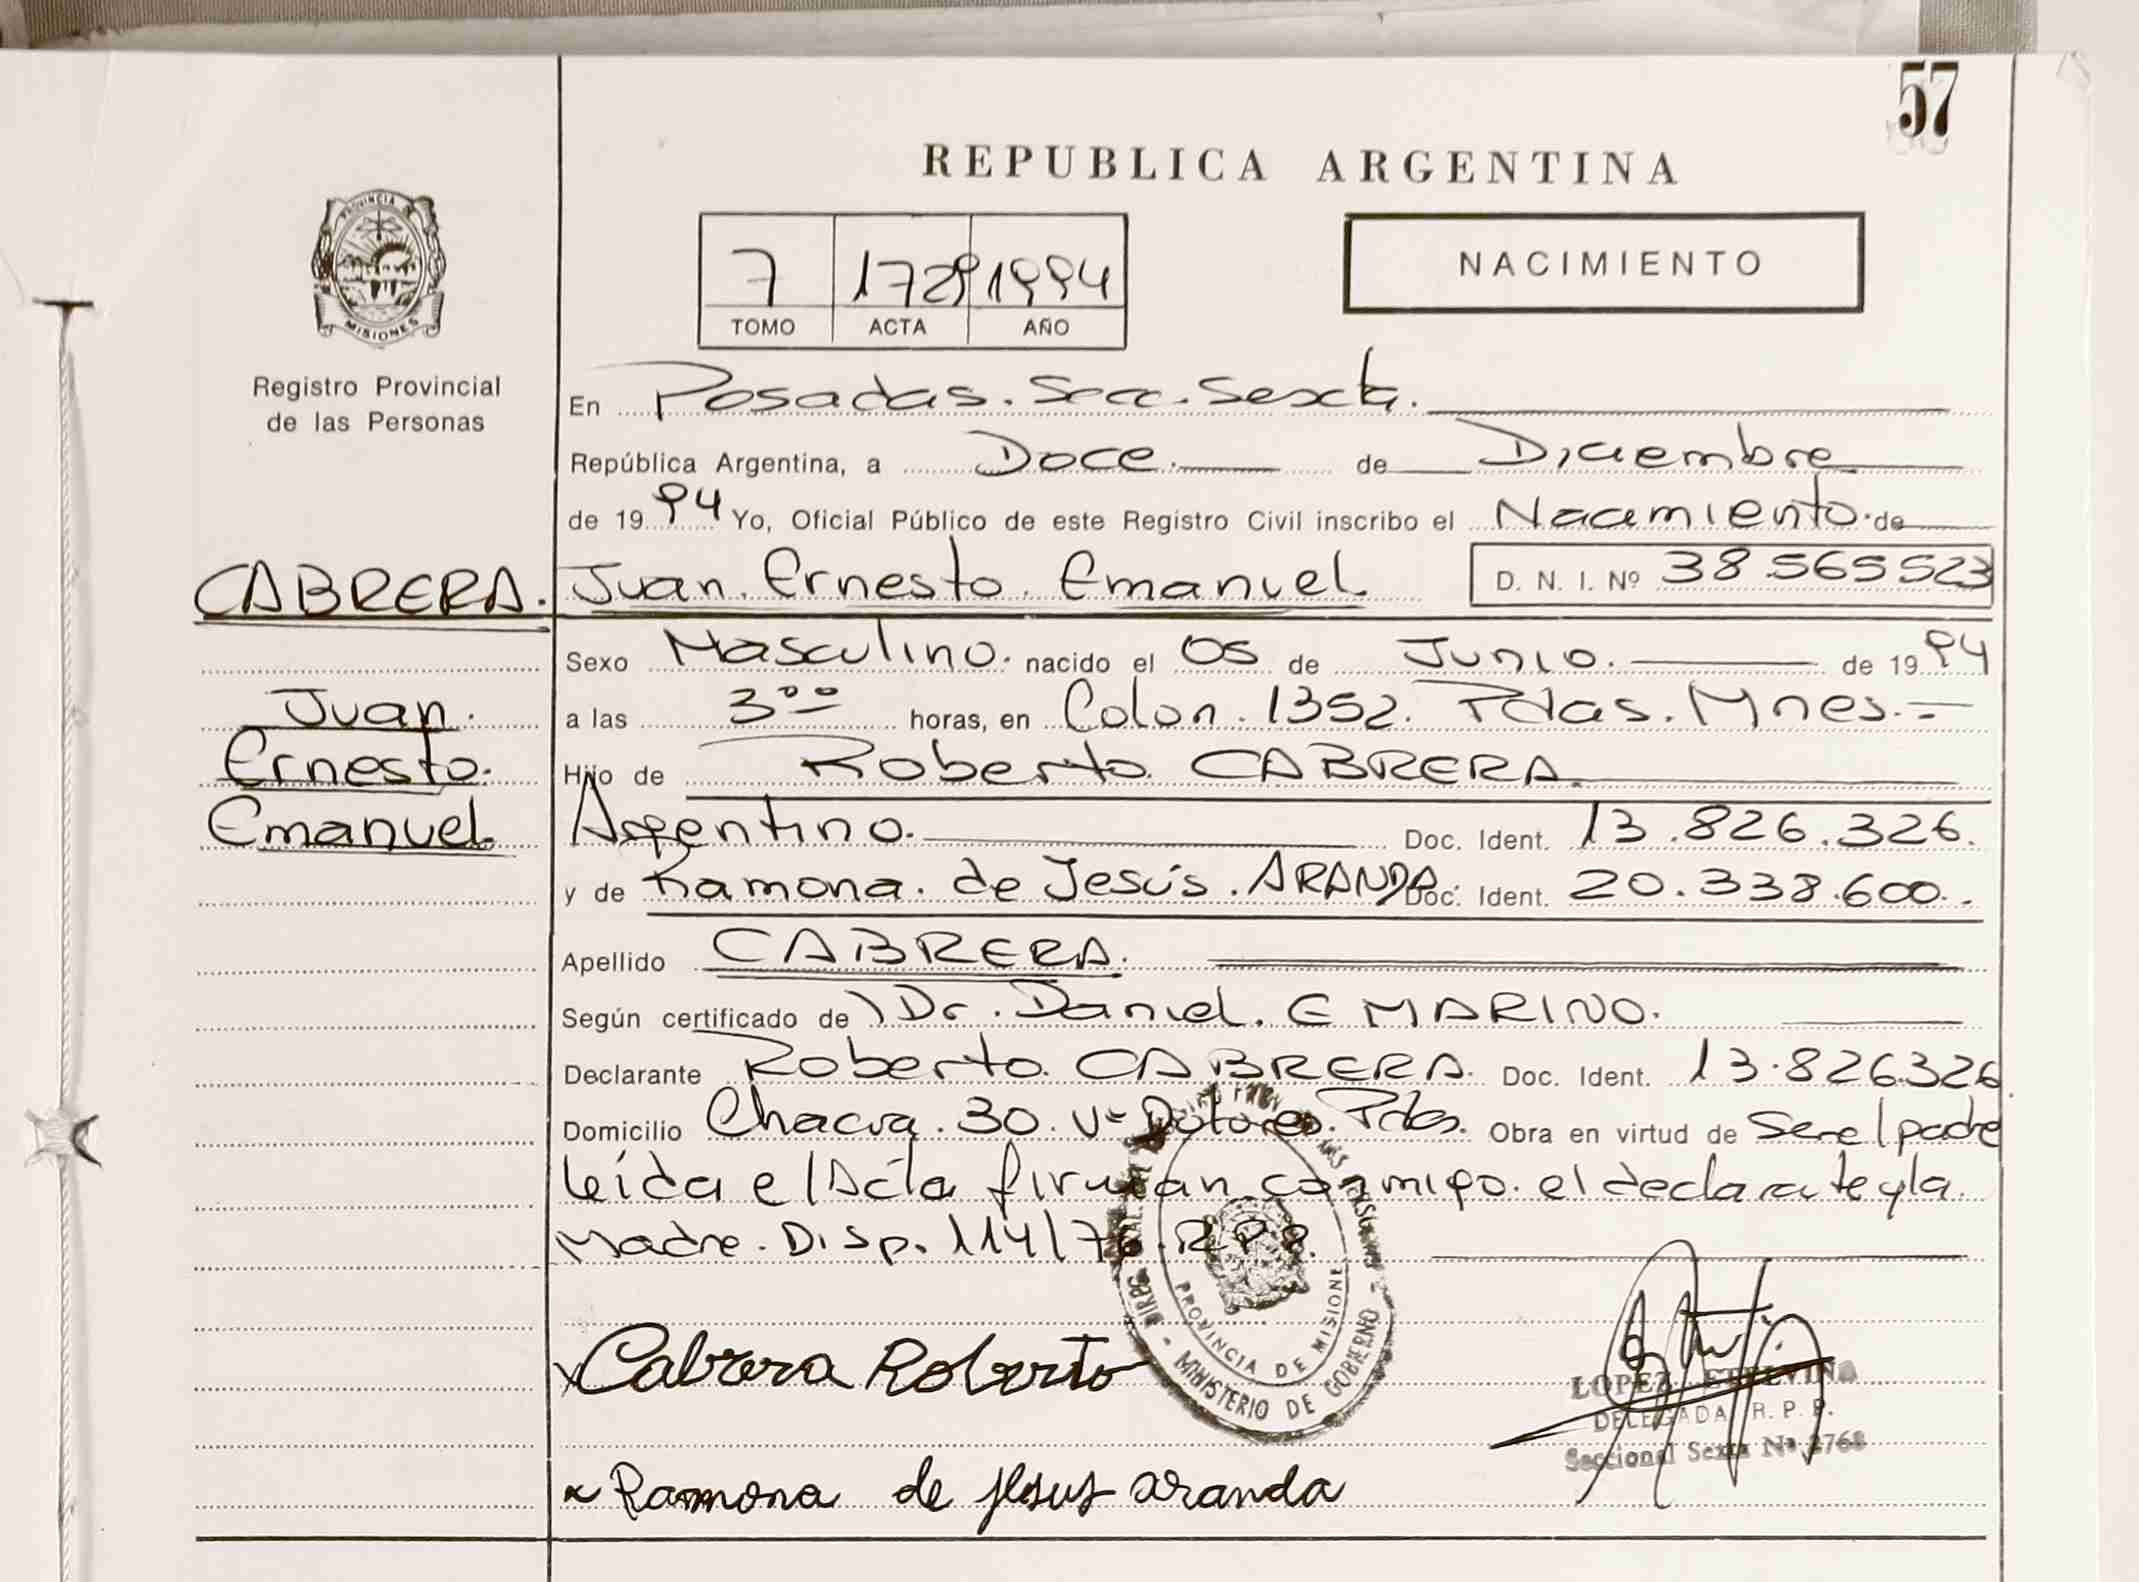 57
REPUBLICA ARGENTINA
PROVINCIA DE
MISIONES
Registro Provincial
de las Personas
7 1729 1994
TOMO ACTA AÑO
NACIMIENTO
En Posadas. Secc. Sexta.
República Argentina, a Doce. de Diciembre
de 1994 Yo, Oficial Público de este Registro Civil inscribo el Nacimiento de
CABRERA. Juan. Ernesto. Emanuel. D. N. I. Nº 38.565.523
Sexo Masculino. nacido el 05 de Junio. de 1994
Juan. a las 3⁰⁰ horas, en Colon. 1352. Pdas. Mnes.-
Ernesto. Hijo de Roberto. CABRERA.
Emanuel. Argentino. Doc. Ident. 13.826.326.
y de Ramona. de Jesús. ARANDA. Doc. Ident. 20.338.600.-
Apellido CABRERA.
Según certificado de Dr. Daniel. E MARINO.
Declarante Roberto. CABRERA. Doc. Ident. 13.826.326
Domicilio Chacra. 30. Vª Dolores. Pdas. Obra en virtud de Ser el padre
leída el Acta firman conmigo. el declarante y la
Madre. Disp. 114/76. R.P.P.
PROVINCIA DE MISIONES
MINISTERIO DE GOBIERNO
x Cabrera Roberto
LOPEZ ETELVINA
DELEGADA R. P. P.
Seccional Sexta Nº 2768
x Ramona de Jesus aranda